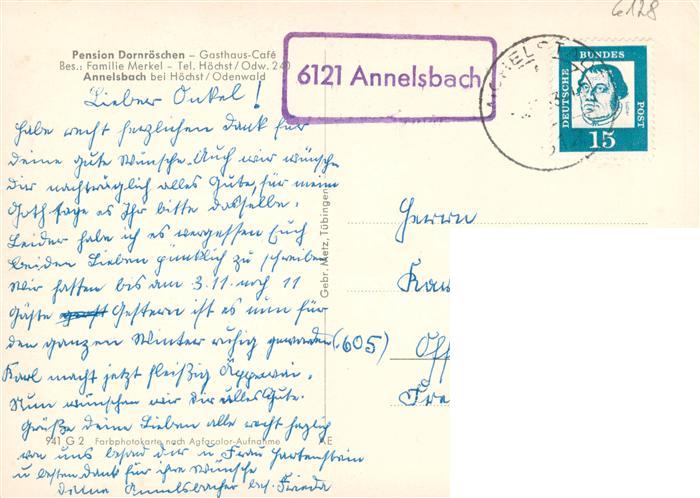 6128
Pension Dornröschen – Gasthaus-Café
Bes.: Familie Merkel – Tel. Höchst/Odw. 240
Annelsbach bei Höchst/Odenwald
6121 Annelsbach
MICHELST
DEUTSCHE BUNDES POST
15
Lieber Onkel!
Habe recht herzlichen Dank für
deine gute Wünsche. Auch wir wünschen
dir nachträglich alles Gute, für meine
Goth sage es Ihr bitte dasselbe.
Leider habe ich es vergessen Euch
beiden Lieben pünktlich zu schreiben
Wir hatten bis am 3.11. noch 11
Gäste Gestern ist es nun für
den ganzen Winter ruhig geworden
Karl macht jetzt fleißig Äppewei.
Nun wünschen wir Dir alles Gute.
Grüße deine Lieben alle recht herzlich
von uns besond dir u Frau Hartenstein
u besten Dank für ihre Wünsche
Deine Annelsbacher bes. Frieda
Gebr. Metz, Tübingen
Herrn
(605)
941 G 2 Farbphotokarte nach Agfacolor-Aufnahme